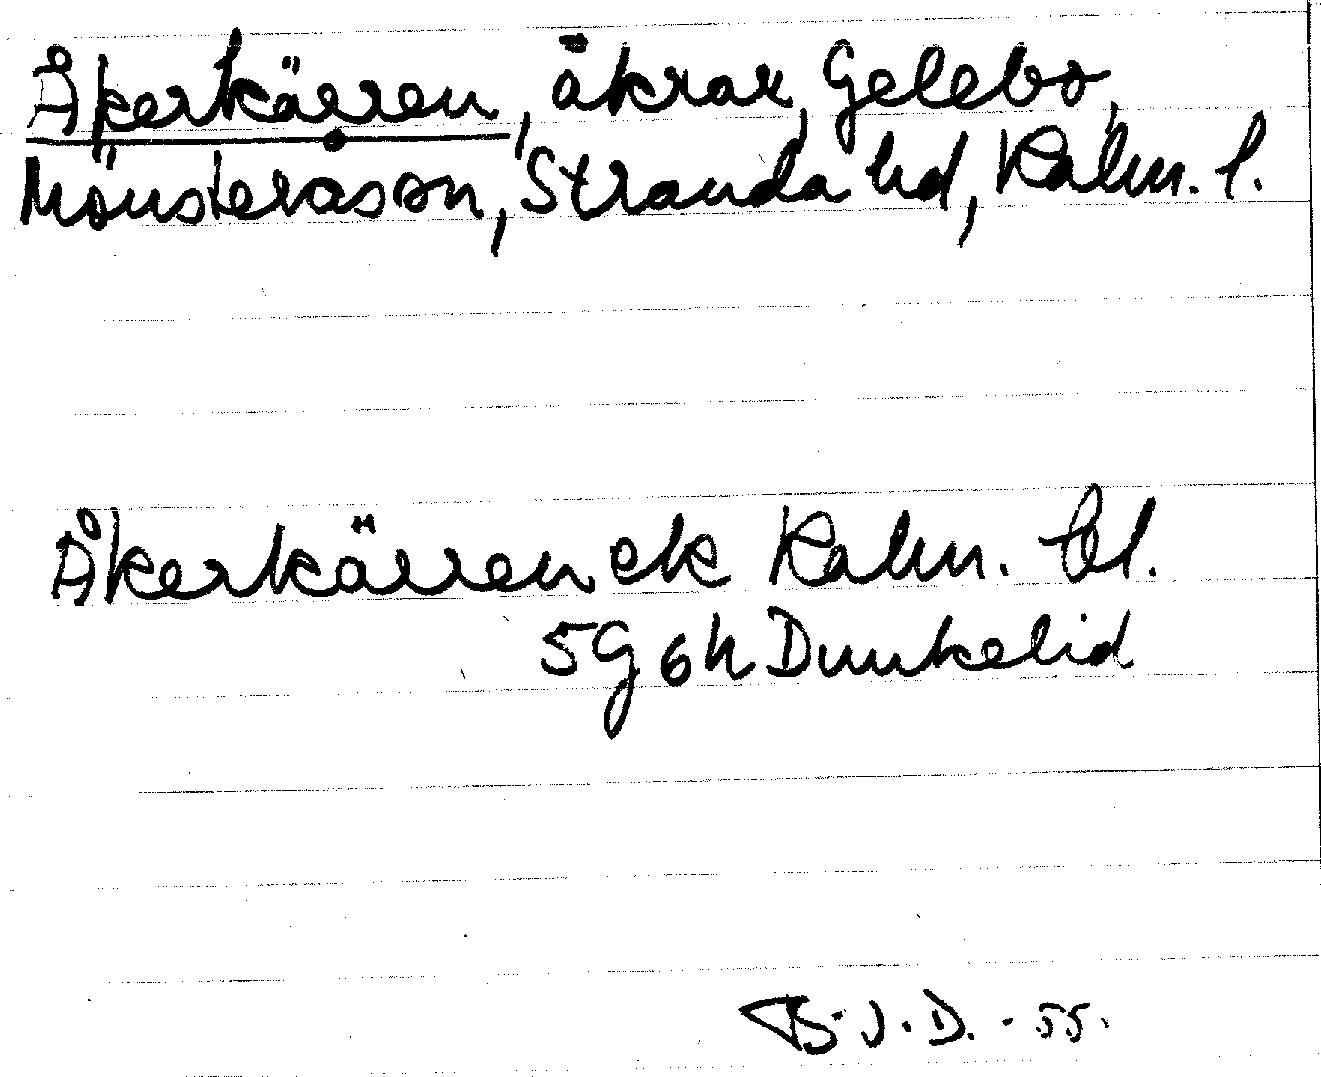 Åkerkärren, åkrar, Gelebo,
Mönsterås sn, Stranda hd, Kalm. l.
Åkerkärren ek Kalm. bl.
5G 6h Dunkelid
B.J.D. - 55.